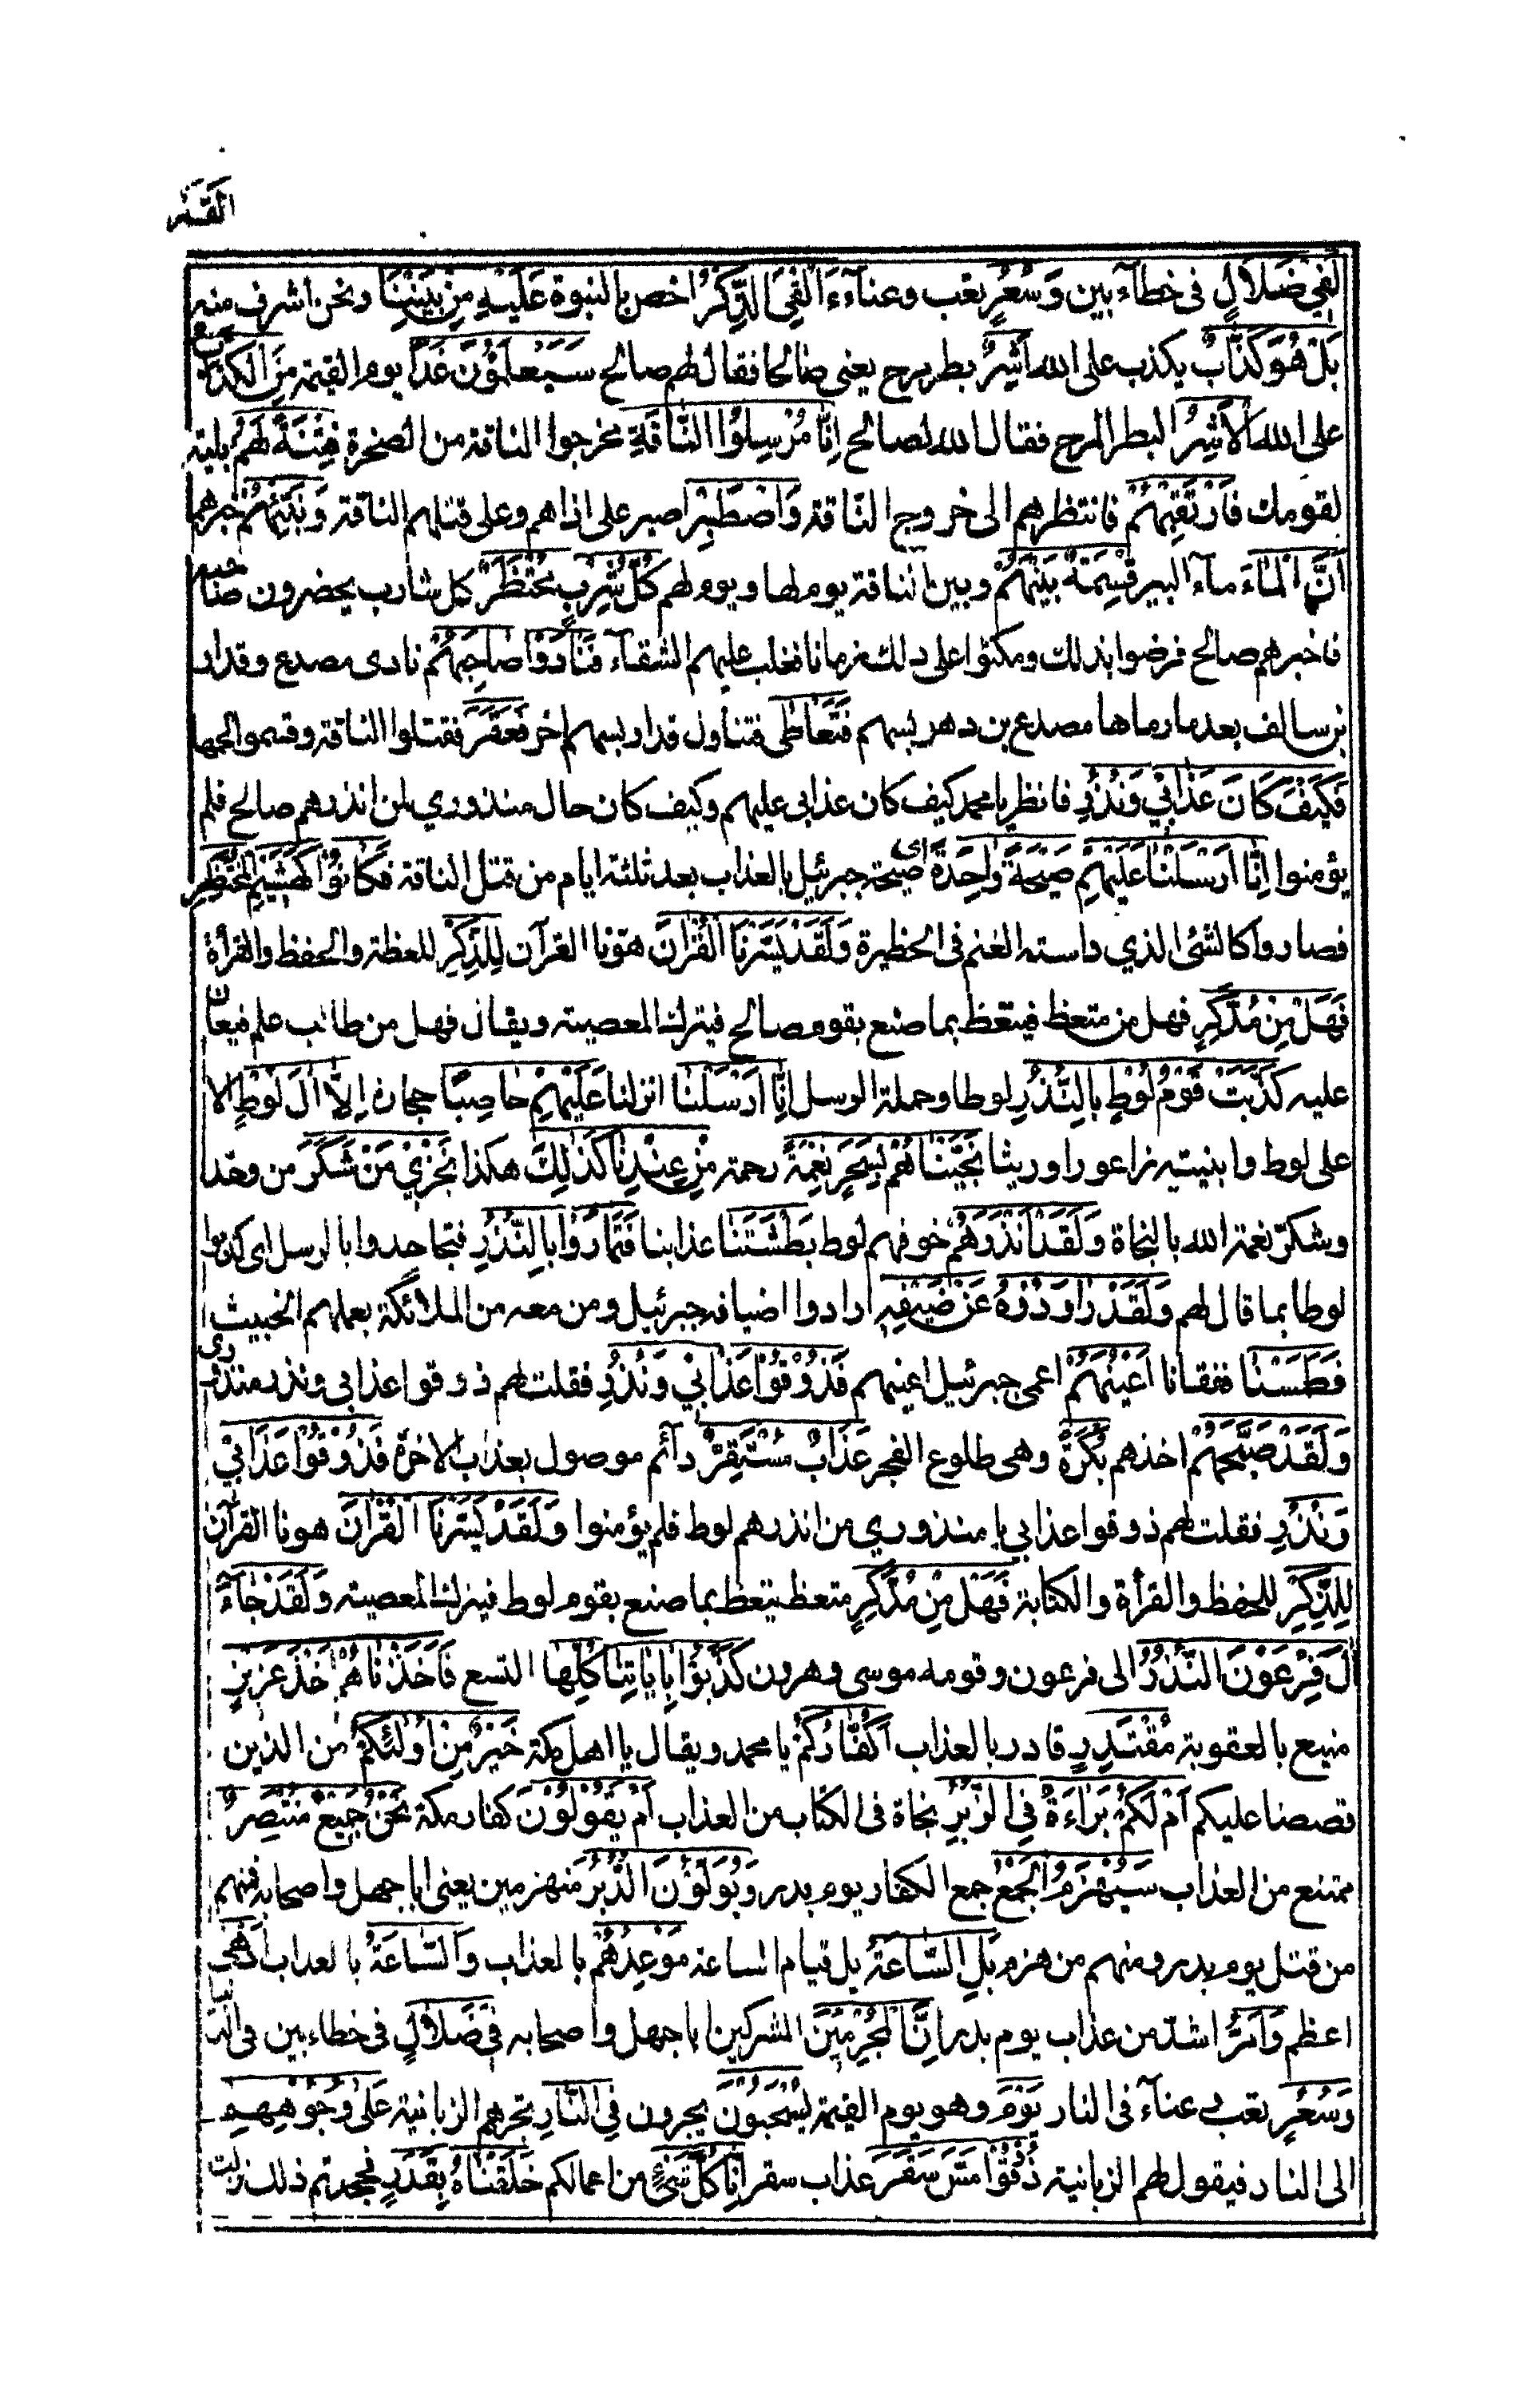 القمر
لَفِي ضَلَالٍ فى خطاء بين وَسُعُرٍ تعب وعناء ءَاُلْقِيَ الذِّكْرُ اخص بالنبوة عَلَيْهِ مِنْ بَيْنِنَا ونحن اشرف منه
بَلْ هُوَ كَذَّابٌ يكذب على الله اَشِرٌ بطر مرح يعنى صالحا فقال لهم صالح سَيَعْلَمُوْنَ غَدًا يوم القيمة مَنِ الْكَذَّابُ
على الله الْاَشِرُ البطر المرح فقال الله لصالح اِنَّا مُرْسِلُوا النَّاقَةِ مخرجوا الناقة من الصخرة فِتْنَةً لَهُمْ بلية
لقومك فَارْتَقِبْهُمْ فانتظرهم الى خروج الناقة وَاصْطَبِرْ اصبر على اذاهم وعلى قتلهم الناقة وَنَبِّئْهُمْ خبرهم
اَنَّ الْمَاءَ ماء البير قِسْمَةٌ بَيْنَهُمْ وبين الناقة يوم لها ويوم لهم كُلُّ شِرْبٍ مُحْتَضَرٌ كل شارب يحضرون صاحبه
فاخبرهم صالح فرضوا بذلك ومكثوا على ذلك زمانا فغلب عليهم الشقاء فَنَادَوْا صَاحِبَهُمْ نادى مصدع وقدار
بن سالف بعد ما رماها مصدع بن دهر بسهم فَتَعَاطٰى فتناول قدار بسهم اخر فَعَقَرَ فقتلوا الناقة وقسموا لحمها
فَكَيْفَ كَانَ عَذَابِيْ وَنُذُرِ فانظر يا محمد كيف كان عذابى عليهم وكيف كان حال منذوري لمن انذرهم صالح فلم
يؤمنوا اِنَّا اَرْسَلْنَا عَلَيْهِمْ صَيْحَةً وَاحِدَةً اى صيحة جبرئيل بالعذاب بعد ثلثة ايام من قتل الناقة فَكَانُوْا كَهَشِيْمِ الْمُحْتَظِرِ
فصاروا كالشئ الذي داسته الغنم فى الحظيرة وَلَقَدْ يَسَّرْنَا الْقُرْاٰنَ هونا القرآن لِلذِّكْرِ للعظة والحفظ والقرأة
فَهَلْ مِنْ مُدَّكِرٍ فهل من متعظ فيتعظ بما صنع بقوم صالح فيترك المعصية ويقال فهل من طالب علم فيعان
عليه كَذَّبَتْ قَوْمُ لُوْطٍ بِالنُّذُرِ لوطا وجملة الرسل اِنَّا اَرْسَلْنَا انزلنا عَلَيْهِمْ حَاصِبًا حجارة اِلَّا اٰلَ لُوْطٍ الا
على لوط وابنيته زاعورا وريثا نَجَّيْنَاهُمْ بِسَحَرٍ نِعْمَةً رحمة مِنْ عِنْدِنَا كَذٰلِكَ هكذا نَجْزِيْ مَنْ شَكَرَ من وحد
وشكر نعمة الله بالنجاة وَلَقَدْ اَنْذَرَهُمْ خوفهم لوط بَطْشَتَنَا عذابنا فَتَمَارَوْا بِالنُّذُرِ فتجاحدوا بالرسل اى كذبوا
لوطا بما قال لهم وَلَقَدْ رَاوَدُوْهُ عَنْ ضَيْفِهٖ ارادوا اضيافه جبرئيل ومن معه من الملائكة بعملهم الخبيث
فَطَمَسْنَا ففقانا اَعْيُنَهُمْ اعمى جبرئيل اعينهم فَذُوْقُوْا عَذَابِيْ وَنُذُرِ فقلت لهم ذوقوا عذابى ونذر منذوري
وَلَقَدْ صَبَّحَهُمْ اخذهم بُكْرَةً وهى طلوع الفجر عَذَابٌ مُسْتَقِرٌّ دائم موصول بعذاب الاخرة فَذُوْقُوْا عَذَابِيْ
وَنُذُرِ فقلت لهم ذوقوا عذابى يا منذوري من انذرهم لوط فلم يؤمنوا وَلَقَدْ يَسَّرْنَا الْقُرْاٰنَ هونا القرآن
لِلذِّكْرِ للحفظ والقرأة والكتابة فَهَلْ مِنْ مُدَّكِرٍ متعظ يتعظ بما صنع بقوم لوط فيترك المعصية وَلَقَدْ جَاءَ
اٰلَ فِرْعَوْنَ النُّذُرُ الى فرعون وقومه موسى وهرون كَذَّبُوْا بِاٰيَاتِنَا كُلِّهَا التسع فَاَخَذْنَاهُمْ اَخْذَ عَزِيْزٍ
منيع بالعقوبة مُقْتَدِرٍ قادر بالعذاب اَكُفَّارُكُمْ يا محمد ويقال يا اهل مكة خَيْرٌ مِنْ اُولٰئِكُمْ من الذين
قصصنا عليكم اَمْ لَكُمْ بَرَاءَةٌ فِي الزُّبُرِ نجاة فى الكتاب من العذاب اَمْ يَقُوْلُوْنَ كفار مكة نَحْنُ جَمِيْعٌ مُنْتَصِرٌ
ممتنع من العذاب سَيُهْزَمُ الْجَمْعُ جمع الكفار يوم بدر وَيُوَلُّوْنَ الدُّبُرَ منهزمين يعنى ابا جهل واصحابه فمنهم
من قتل يوم بدر ومنهم من هزم بَلِ السَّاعَةُ بل قيام الساعة مَوْعِدُهُمْ بالعذاب وَالسَّاعَةُ بالعذاب اَدْهٰى
اعظم وَاَمَرُّ اشد من عذاب يوم بدر اِنَّ الْمُجْرِمِيْنَ المشركين ابا جهل واصحابه فِيْ ضَلَالٍ فى خطاء بين فى الدنيا
وَسُعُرٍ تعب وعناء فى النار يَوْمَ وهو يوم القيمة يُسْحَبُوْنَ يجرون فِي النَّارِ تجرهم الزبانية عَلٰى وُجُوْهِهِمْ
الى النار فيقول لهم الزبانية ذُوْقُوْا مَسَّ سَقَرَ عذاب سقر اِنَّا كُلَّ شَيْءٍ من اعمالكم خَلَقْنَاهُ بِقَدَرٍ فجحدتم ذلك نزلت